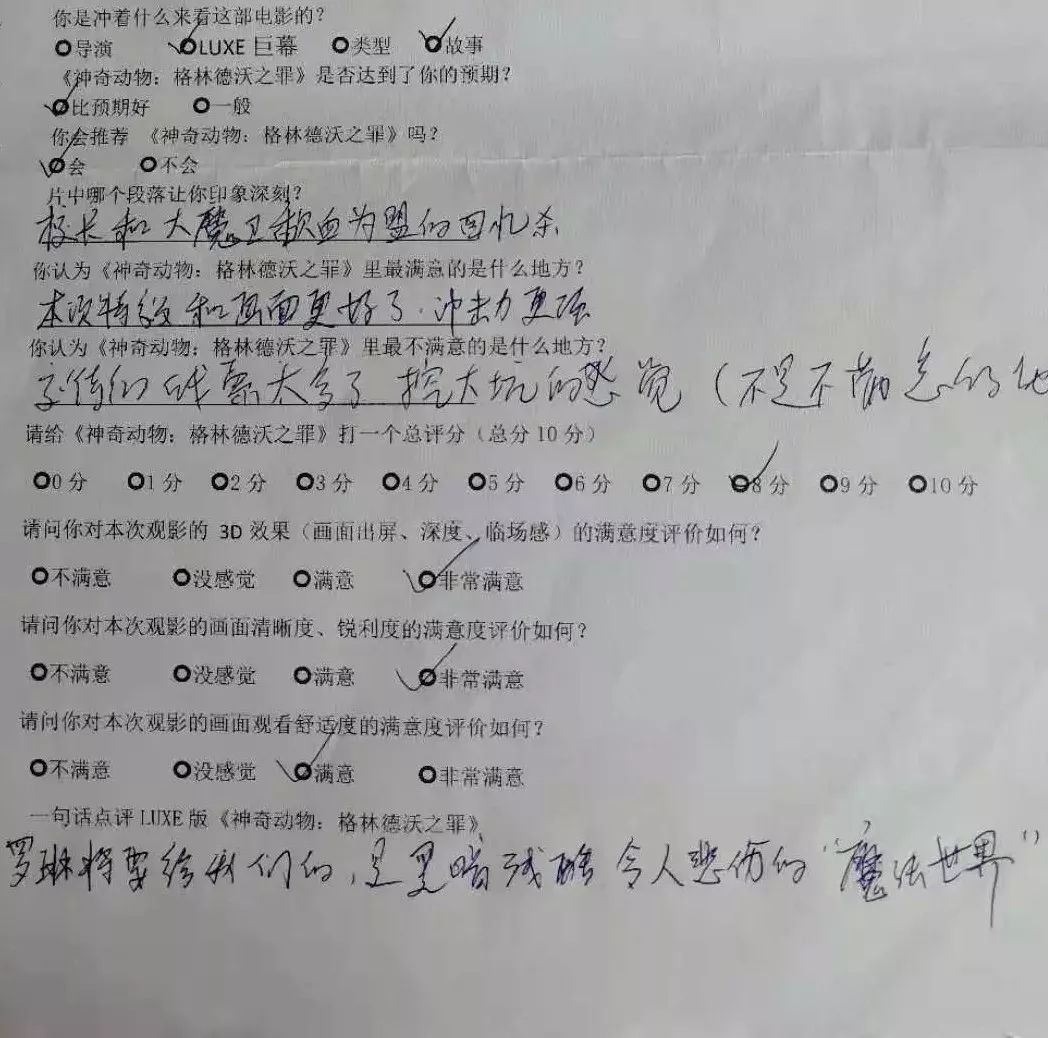 你是冲着什么来看这部电影的？
导演 LUXE 巨幕 类型 故事
《神奇动物：格林德沃之罪》是否达到了你的预期？
比预期好 一般
你会推荐 《神奇动物：格林德沃之罪》吗？
会 不会
片中哪个段落让你印象深刻？
校长和大魔王歃血为盟的回忆杀
你认为《神奇动物：格林德沃之罪》里最满意的是什么地方？
本次特效和画面更好了．冲击力更强
你认为《神奇动物：格林德沃之罪》里最不满意的是什么地方？
线索太多了 挖大坑的感觉（不是不励志的
请给《神奇动物：格林德沃之罪》打一个总评分（总分 10 分）
0 分 1 分 2 分 3 分 4 分 5 分 6 分 7 分 8 分 9 分 10 分
请问你对本次观影的 3D 效果（画面出屏、深度、临场感）的满意度评价如何？
不满意 没感觉 满意 非常满意
请问你对本次观影的画面清晰度、锐利度的满意度评价如何？
不满意 没感觉 满意 非常满意
请问你对本次观影的画面观看舒适度的满意度评价如何？
不满意 没感觉 满意 非常满意
一句话点评 LUXE 版《神奇动物：格林德沃之罪》
罗琳将要给我们的，是黑暗残酷令人悲伤的“魔法世界”